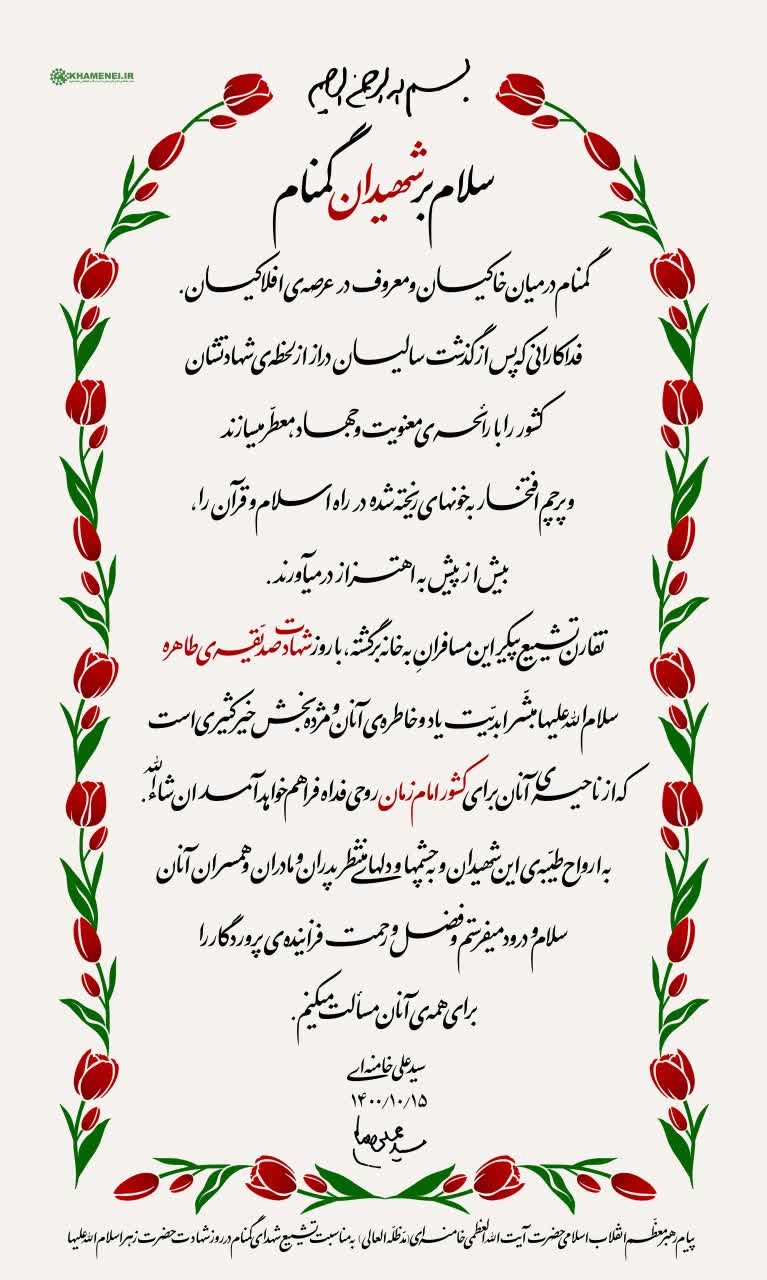 KHAMENEI.IR
بسم الله الرحمن الرحیم
سلام بر شهیدان گمنام
گمنام در میان خاکیان و معروف در عرصه‌ی افلاکیان.
فداکارانی که پس از گذشت سالیان دراز از لحظه‌ی شهادتشان
کشور را با رائحه‌ی معنویت و جهاد، معطّر میسازند
و پرچم افتخار به خونهای ریخته شده در راه اسلام و قرآن را،
بیش از پیش به اهتزاز درمیآورند.
تقارن تشییع پیکر این مسافرانِ به خانه برگشته، با روز شهادت صدّیقه‌ی طاهره
سلام‌الله‌علیها مبشّر ابدیّت یاد و خاطره‌ی آنان و مژده‌بخش خیر کثیری است
که از ناحیه‌ی آنان برای کشور امام زمان روحی فداه فراهم خواهد آمد ان‌شاءالله.
به ارواح طیّبه‌ی این شهیدان و به چشمها و دلهای منتظر پدران و مادران و همسران آنان
سلام و درود میفرستم و فضل و رحمت فزاینده‌ی پروردگار را
برای همه‌ی آنان مسألت میکنم.
سید علی خامنه‌ای
۱۴۰۰/۱۰/۱۵
پیام رهبر معظّم انقلاب اسلامی حضرت آیت الله العظمی خامنه‌ای (مدّظلّه العالی) به مناسبت تشییع شهدای گمنام در روز شهادت حضرت زهرا سلام‌الله‌علیها